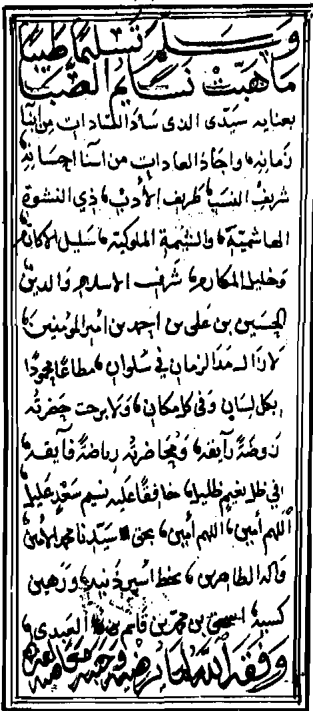 وسلم تسليما طيبا
ما هبت نسايم الصبا
بعنايه سيدى الذى ساد السادات من ابنا
زمانه، واجاد العادات من اسنا احسانه
شريف النسب، ظريف الأدب، ذي النشوة
الهاشمية، والشيمة الملوكية، سليل الاكارم
وخليل المكارم، شرف الاسلام والدين
الحسين بن على بن احمد بن امير المؤمنين،
لا زال مدا الزمان في سلوان، مطاعا محمودا
بكل لسان وفي كل مكان، ولا برحت حضرته
روضة رايقه، ومحاضرته رياضة فايقه،
في ظل نعيم ظليل، خافقا عليه نسيم سعد عليل،
اللهم أمين، اللهم أمين، بحق سيدنا محمد الأمين
واله الطاهرين، بخط اسير ذنبه، ورهين
كسبه، اسحق بن محمد بن قاسم العبدي،
وفقه الله لما يرضيه